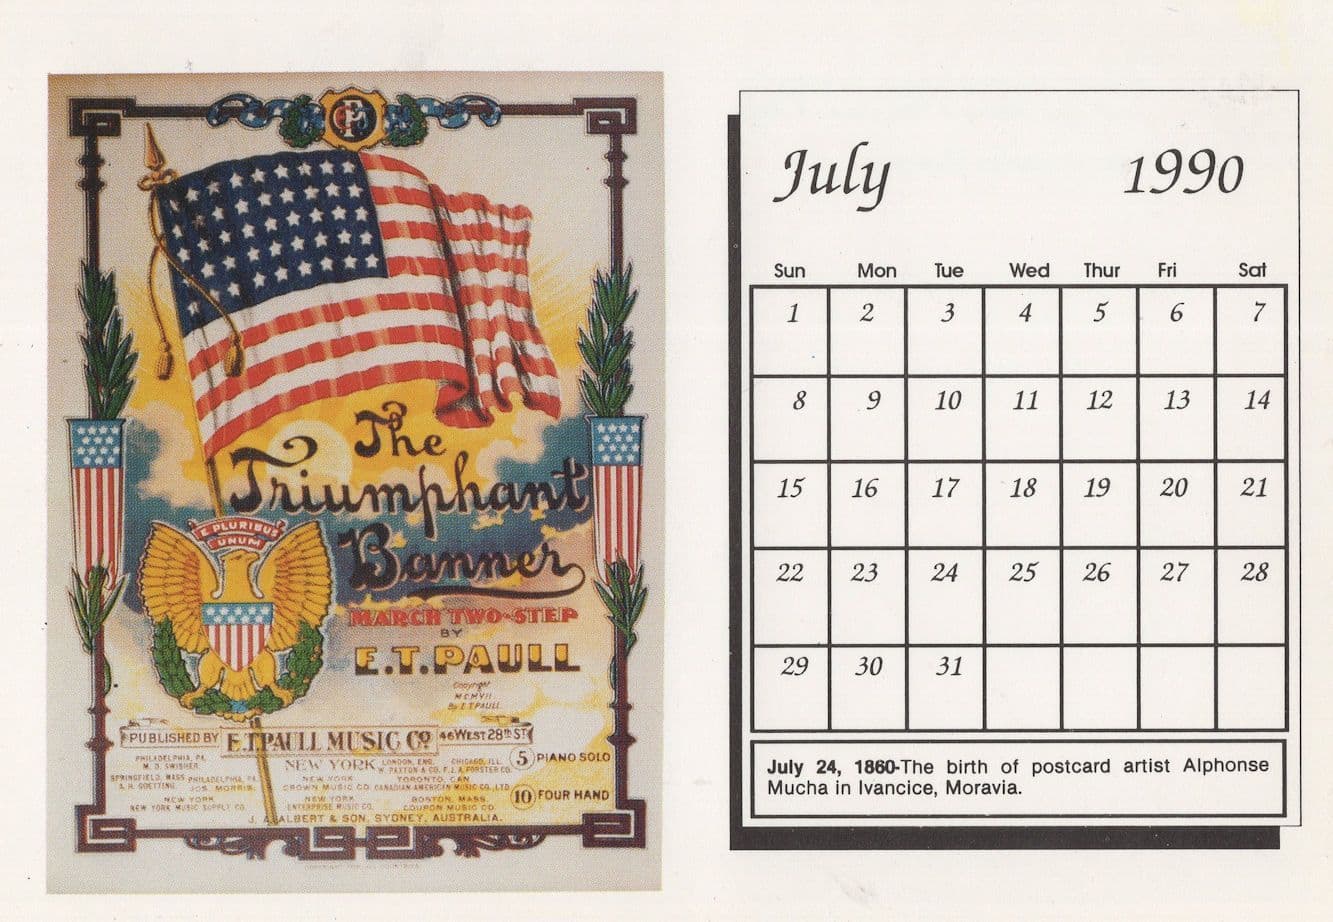 E PLURIBUS
UNUM
The
Triumphant
Banner
MARCH TWO-STEP
BY
E.T. PAULL
Copyright
MCMVII
By E.T. PAULL
PUBLISHED BY E.T. PAULL MUSIC CO. 46 WEST 28th ST.
NEW YORK
PHILADELPHIA, PA.
M. D. SWISHER
SPRINGFIELD, MASS.
A. H. GOETTING
PHILADELPHIA, PA.
JOS. MORRIS
NEW YORK
NEW YORK MUSIC SUPPLY CO.
NEW YORK
CROWN MUSIC CO.
NEW YORK
ENTERPRISE MUSIC CO.
LONDON, ENG.
W. PAXTON & CO.
CHICAGO, ILL.
F.J.A. FORSTER CO.
TORONTO, CAN
CANADIAN-AMERICAN MUSIC CO., LTD
BOSTON, MASS.
COUPON MUSIC CO.
J. ALBERT & SON, SYDNEY, AUSTRALIA.
5 PIANO SOLO
10 FOUR HAND
July 1990
Sun Mon Tue Wed Thur Fri Sat
1 2 3 4 5 6 7
8 9 10 11 12 13 14
15 16 17 18 19 20 21
22 23 24 25 26 27 28
29 30 31
July 24, 1860-The birth of postcard artist Alphonse
Mucha in Ivancice, Moravia.